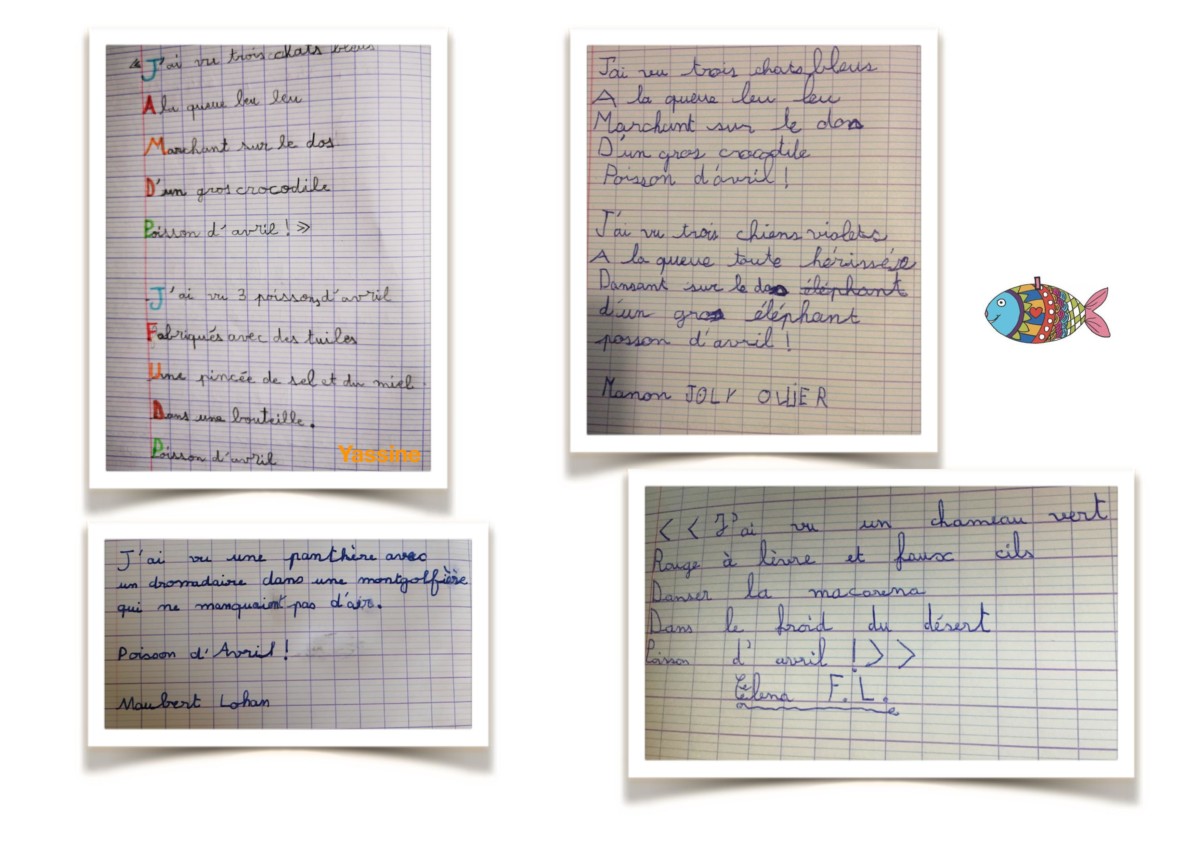 « J'ai vu trois chats bleus
A la queue leu leu
Marchant sur le dos
D'un gros crocodile
Poisson d'avril ! »
J'ai vu 3 poissons d'avril
Fabriqués avec des tuiles
Une pincée de sel et du miel.
Dans une bouteille.
Poisson d'avril
Yassine
J'ai vu trois chats bleus
A la queue leu leu
Marchant sur le dos
D'un gros crocodile
Poisson d'avril !
J'ai vu trois chiens violets
A la queue toute hérissée
Dansant sur le dos éléphant
d'un gros éléphant
posson d'avril !
Manon JOLY OLLIER
J'ai vu une panthère avec
un dromadaire dans une montgolfière
qui ne manquaient pas d'air.
Poisson d'Avril !
Maubert Lohan
<< J'ai vu un chameau vert
Rouge à lèvre et faux cils
Danser la macarena
Dans le froid du désert
Poisson d'avril !>>
Elena F.L.